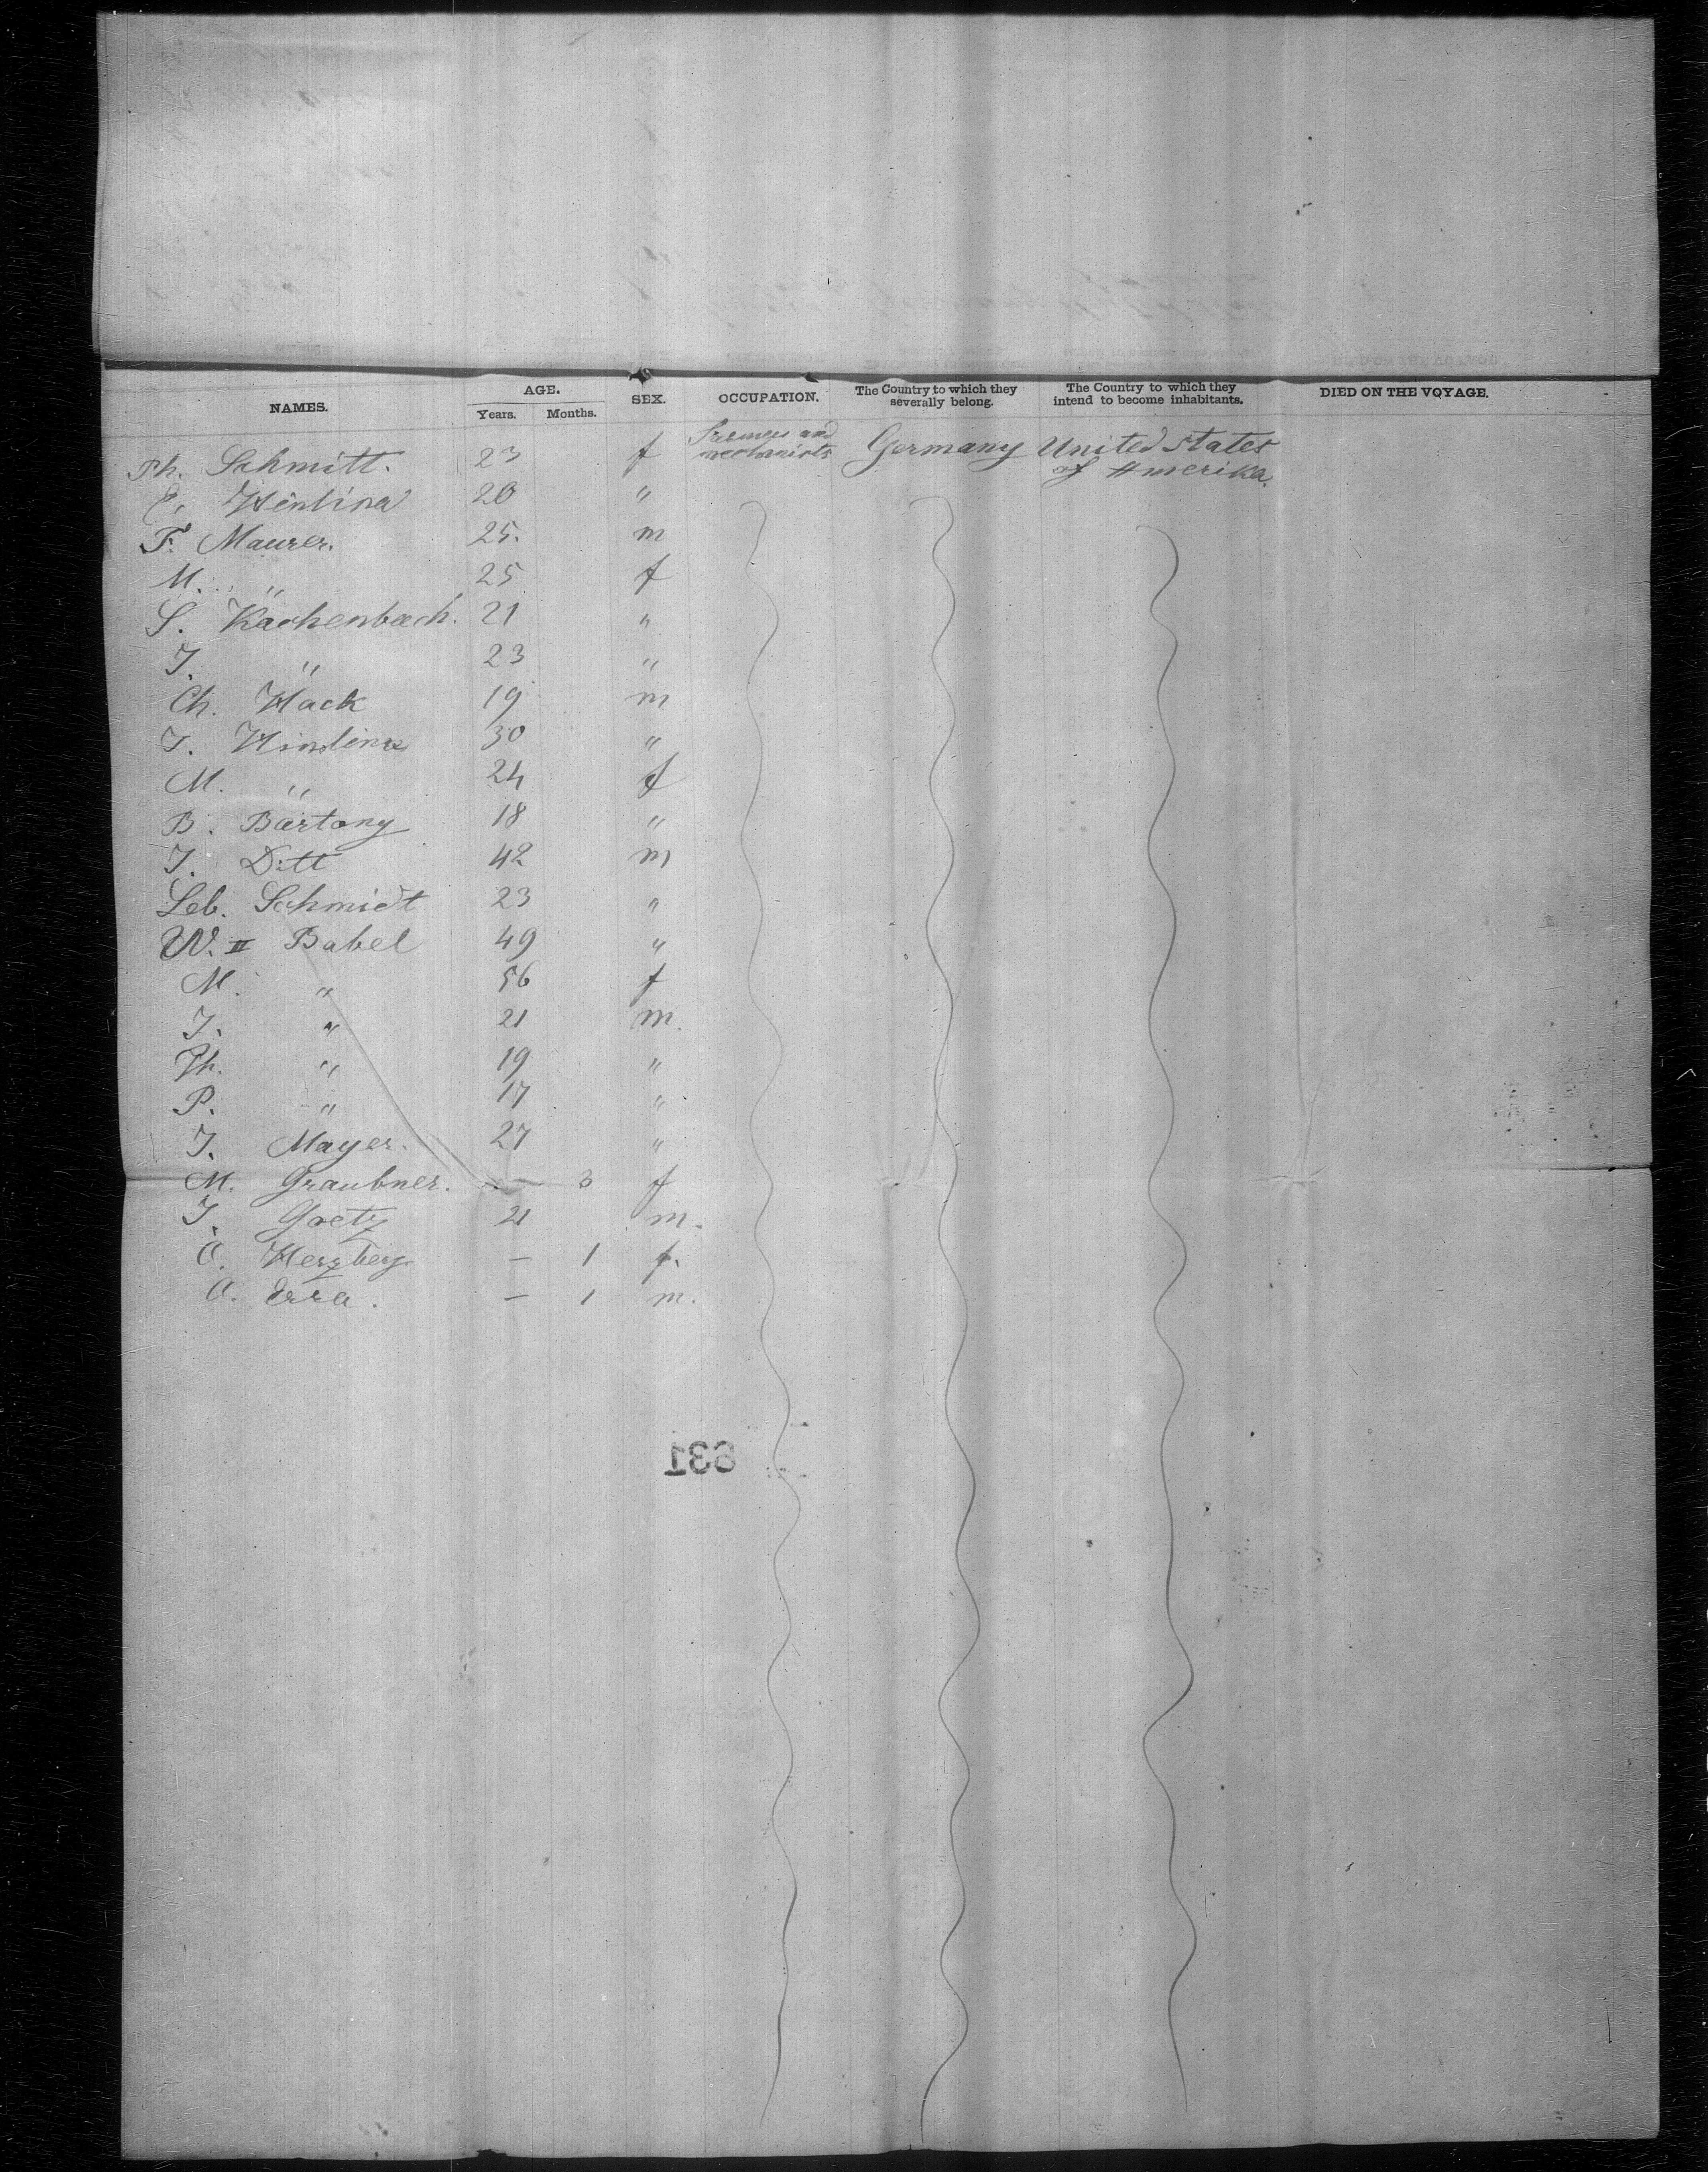 NAMES. AGE. Years. Months. SEX. OCCUPATION. The Country to which they severally belong. The Country to which they intend to become inhabitants. DIED ON THE VOYAGE.
Ph. Schmitt. 23 f Farmers and mechanists Germany United States of Amerika.
E. 20 "
F. Maurer. 25. m
M. " 25 f
S. Kachenbach. 21 "
J. " 23 "
Ch. Hack 19 m
J. 30 "
M. " 24 f
B. Bartony 18 "
J. Ditt 42 m
Seb. Schmidt 23 "
W. II Babel 49 "
M. " 56 f
J. " 21 m.
Th. " 19 "
P. " 17 "
J. Mayer. 27 "
M. Graubner. — 3 f
J. Goetz 21 m.
O. Herzberg — 1 f.
O. — 1 m.
631